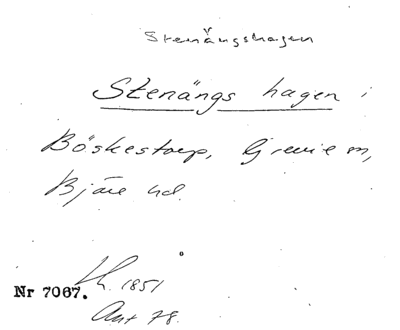 Stenängshagen
Stenängs hagen i
Böskestorp, Grevie sn,
Bjäre hd.
Lh. 1851
Nr 7067.
Ant 78.